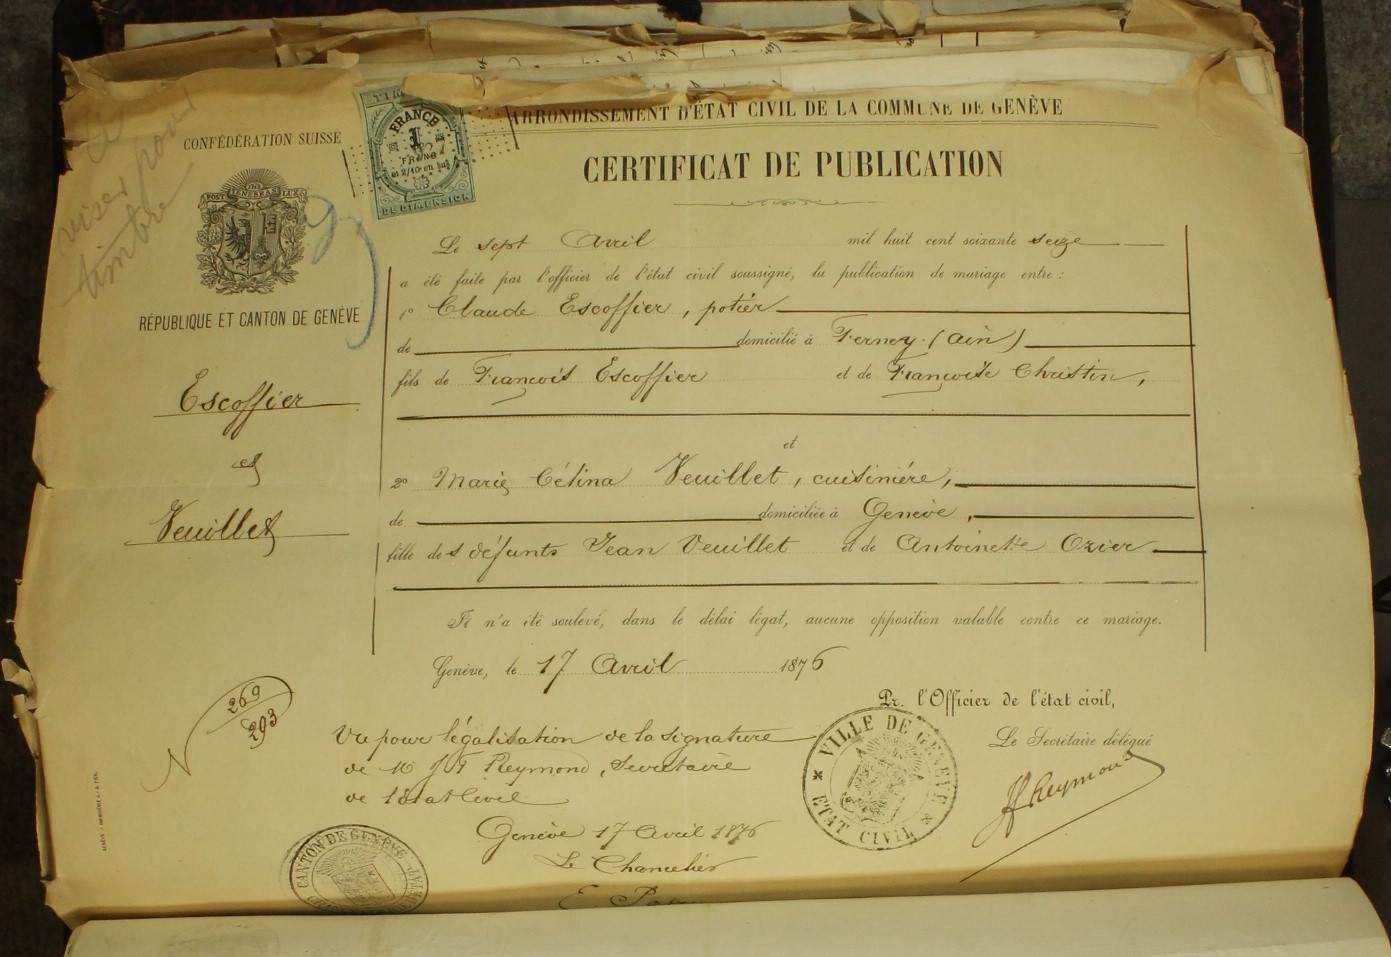 ARRONDISSEMENT D'ÉTAT CIVIL DE LA COMMUNE DE GENÈVE
CONFÉDÉRATION SUISSE
viser pour
timbre
POST TENEBRAS LUX
RÉPUBLIQUE ET CANTON DE GENÈVE
FRANCE
1
FRANC
et 2/10 en sus
DE DIMENSION
CERTIFICAT DE PUBLICATION
Le sept Avril mil huit cent soixante seize
a été faite par l'officier de l'état civil soussigné, la publication de mariage entre :
1º Claude Escoffier, potier
de domicilié à Ferney (Ain)
fils de François Escoffier et de Françoise Christin,
Escoffier
et
Veuillet
et
2º Marie Célina Veuillet, cuisinière,
de domiciliée à Genève,
fille des défunts Jean Veuillet et de Antoinette Ozier
Il n'a été soulevé, dans le délai légal, aucune opposition valable contre ce mariage.
Genève, le 17 Avril 1876
Pr. l'Officier de l'état civil,
Le Secrétaire délégué
JF Reymond
VILLE DE GENEVE
ETAT CIVIL
269
293
Vu pour légalisation de la signature
de Mr J F Reymond, Secrétaire
de l'Etat Civil
Genève 17 Avril 1876
Le Chancelier
CANTON DE GENÈVE